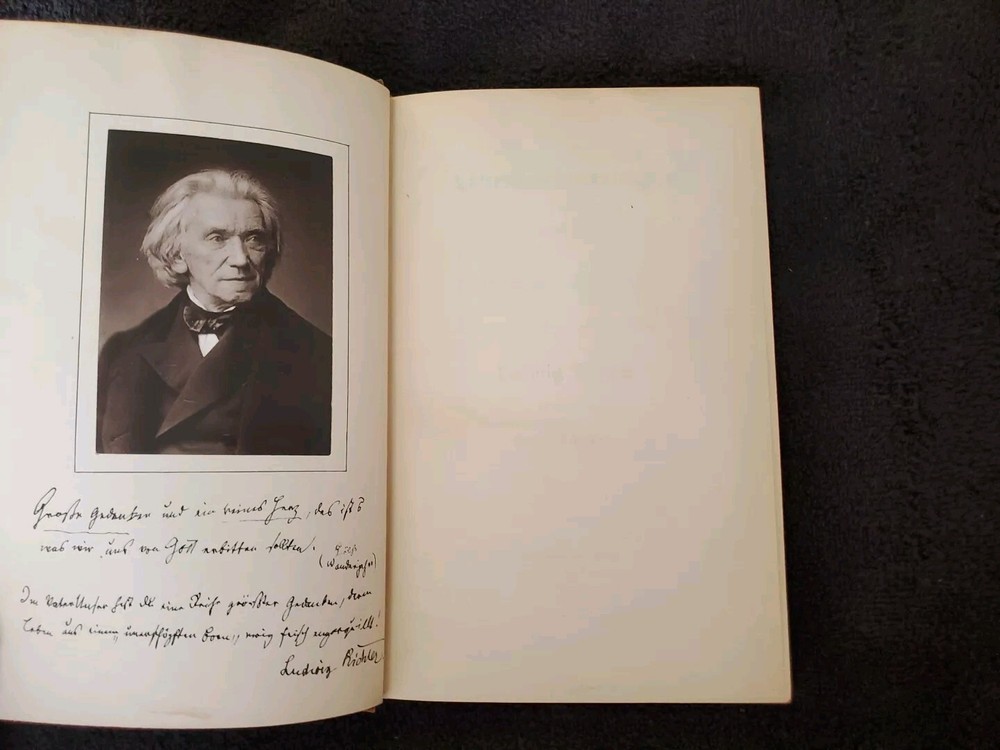 Große Gedanken und ein reines Herz, das ist's
was wir uns von Gott erbitten sollten.
(Wanderjahre)
Im Vater Unser hast du eine Reihe größter Gedanken, deren
Leben aus einem unerschöpften Born, ewig frisch emporquillt!
Ludwig Richter